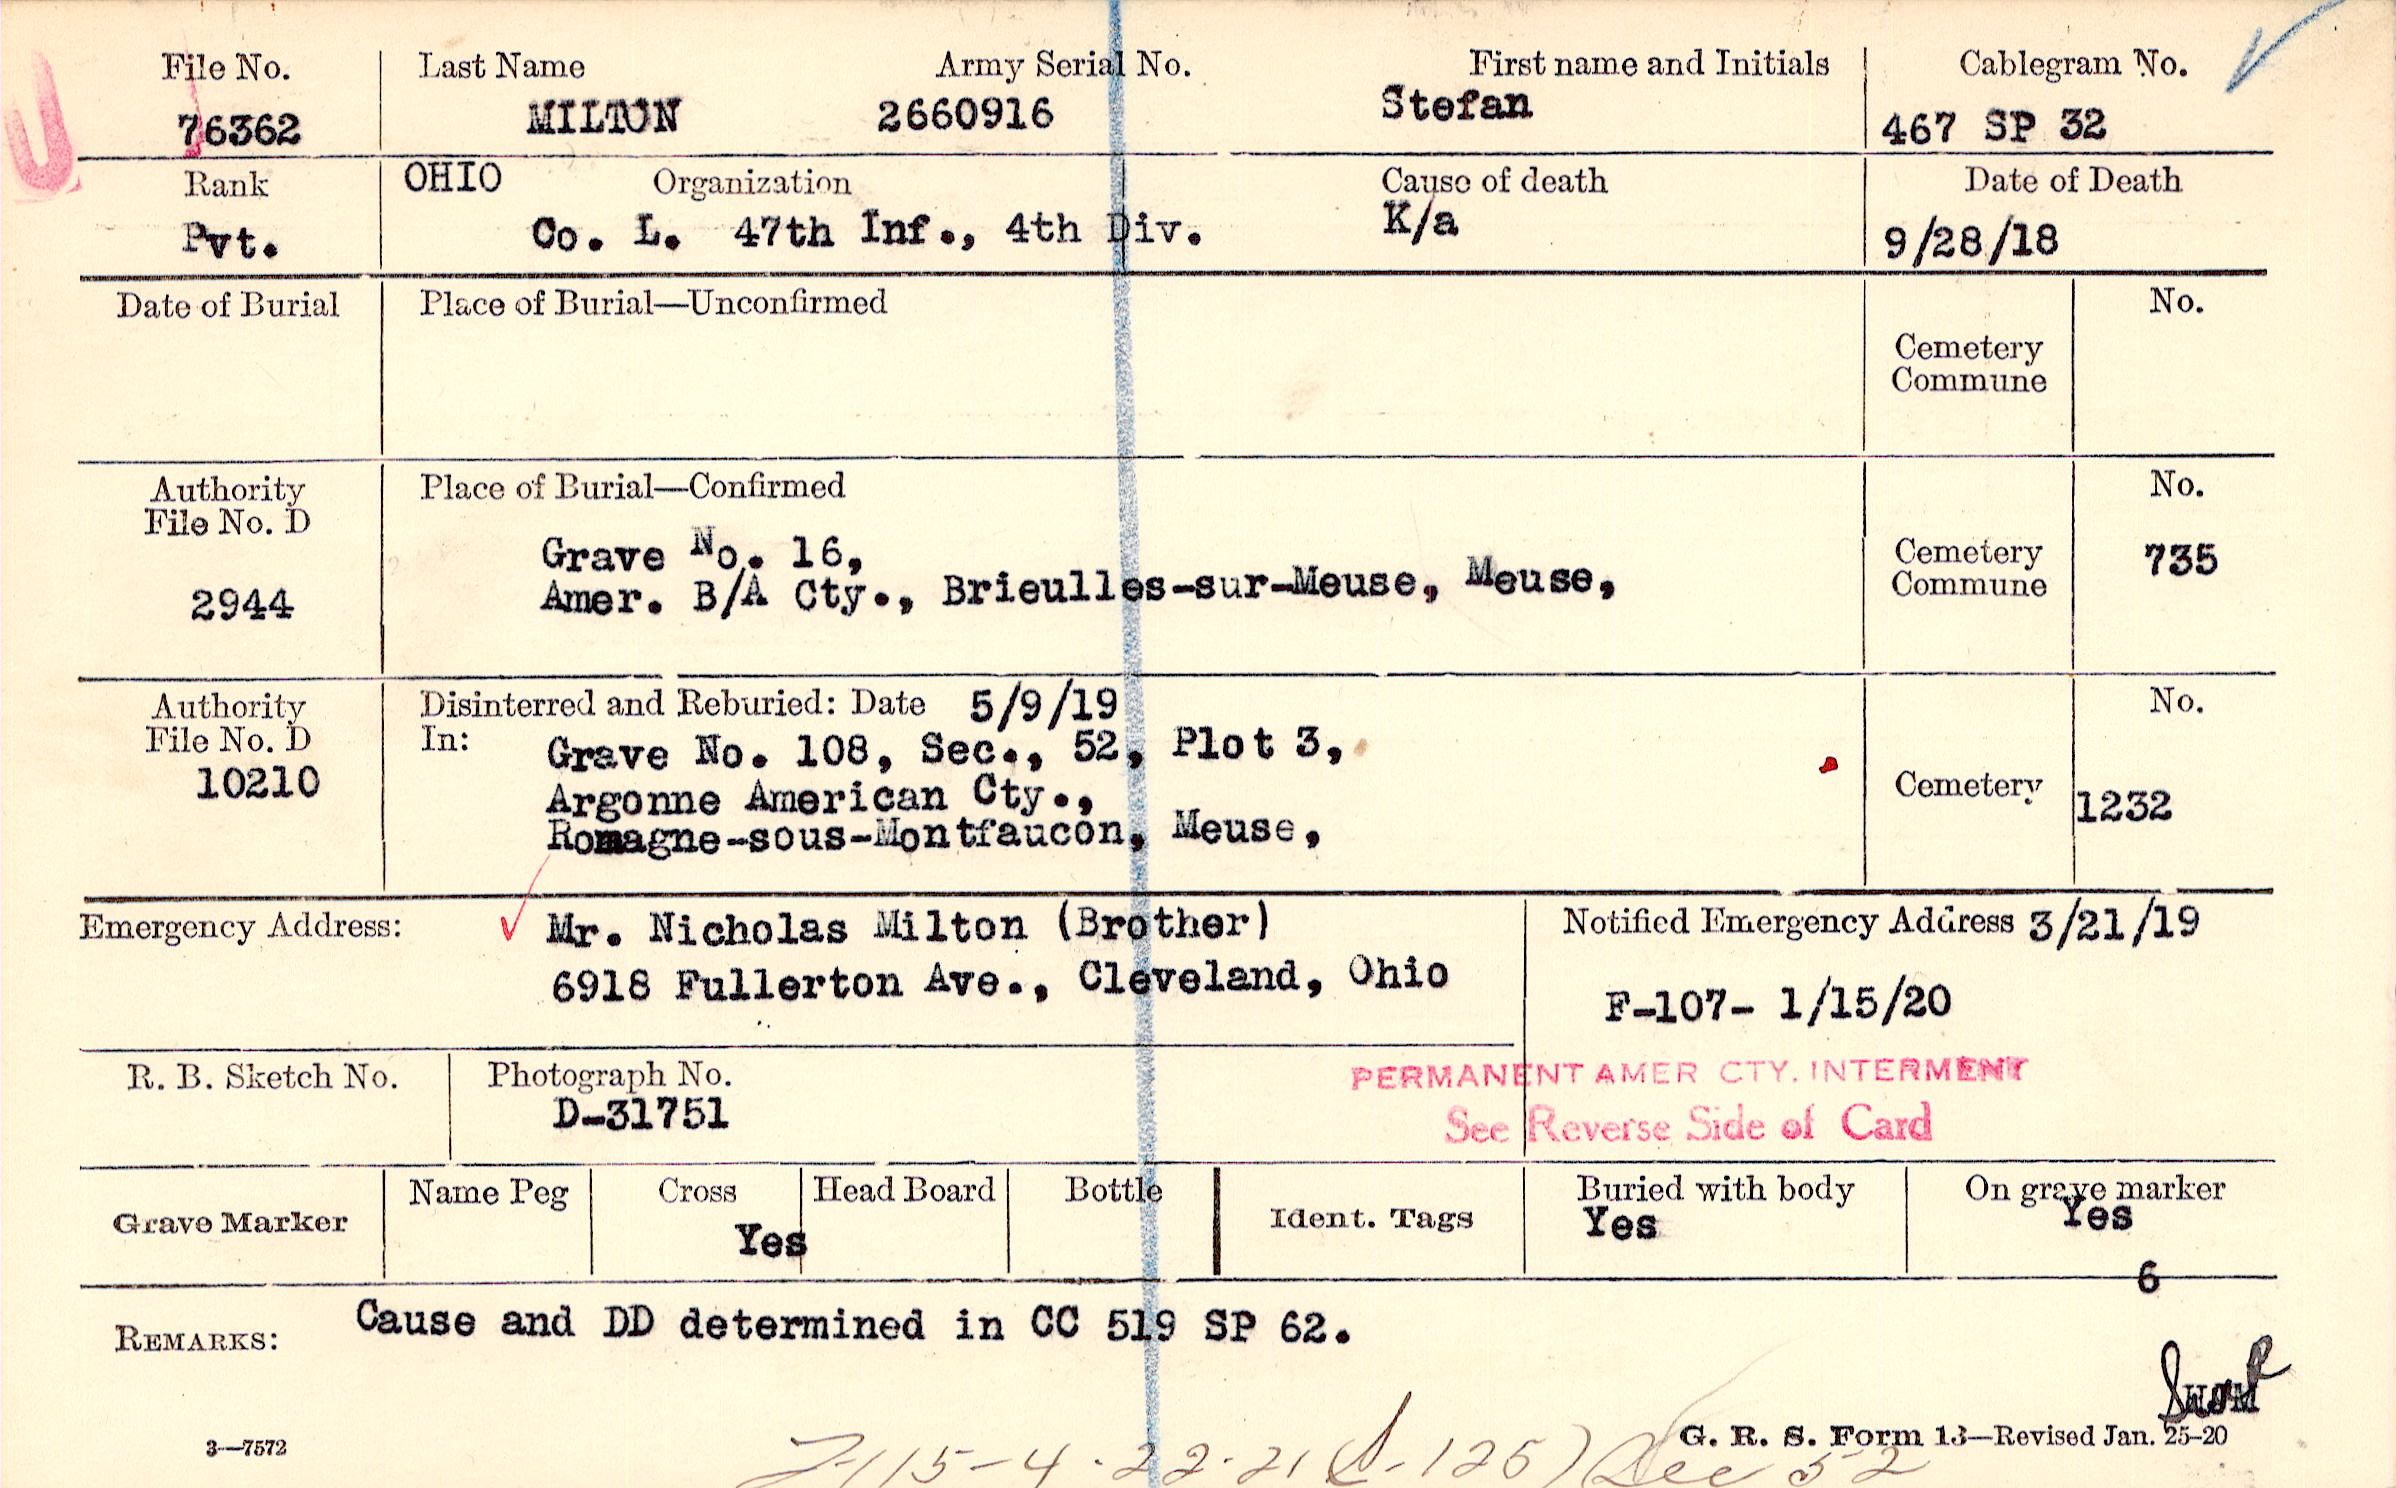 File No. Last Name Army Serial No. First name and Initials Cablegram No.
76362 MILTON 2660916 Stefan 467 SP 32
Rank OHIO Organization Cause of death Date of Death
Pvt. Co. L. 47th Inf., 4th Div. K/a 9/28/18
Date of Burial Place of Burial—Unconfirmed No.
Cemetery
Commune
Authority Place of Burial—Confirmed No.
File No. D
2944
Grave No. 16,
Amer. B/A Cty., Brieulles-sur-Meuse, Meuse,
Cemetery 735
Commune
Authority Disinterred and Reburied: Date 5/9/19 No.
File No. D In: Grave No. 108, Sec., 52, Plot 3,
10210 Argonne American Cty., Cemetery 1232
Romagne-sous-Montfaucon, Meuse,
Emergency Address: Mr. Nicholas Milton (Brother) Notified Emergency Address 3/21/19
6918 Fullerton Ave., Cleveland, Ohio F-107- 1/15/20
R. B. Sketch No. Photograph No. PERMANENT AMER CTY. INTERMENT
D-31751 See Reverse Side of Card
Grave Marker Name Peg Cross Head Board Bottle Ident. Tags Buried with body On grave marker
Yes Yes Yes
6
REMARKS: Cause and DD determined in CC 519 SP 62.
3—7572 G. R. S. Form 13—Revised Jan. 25-20
115-4-22-21 Sec 52